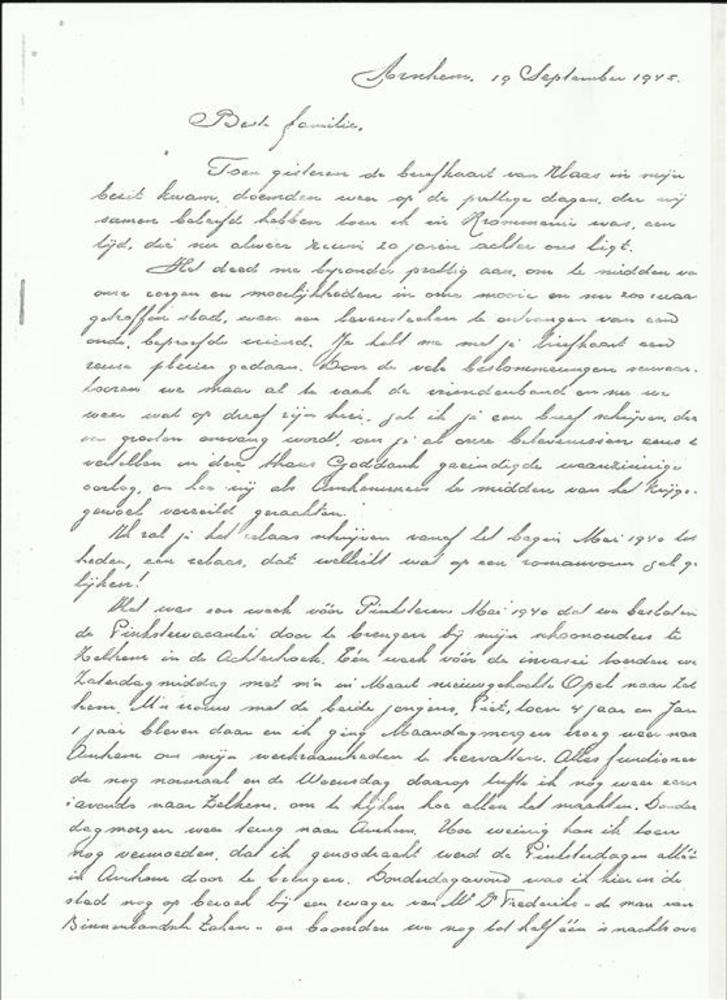 Arnhem. 19 September 1945.
Beste familie,
Toen gisteren de briefkaart van Klaas in mijn
bezit kwam, doemden weer op de prettige dagen, die wij
samen beleefd hebben toen ik in Krommenie was, een
tijd, die nu alweer ruim 20 jaren achter ons ligt.
Het deed me bijzonder prettig aan, om te midden va
onze zorgen en moeilijkheden in onze mooie en nu zoo zwaar
getroffen stad, weer een levensteeken te ontvangen van een
oude, beproefde vriend. Je hebt me met je briefkaart een
reuze plezier gedaan. Door de vele beslommeringen verwaar-
loozen we maar al te vaak de vriendenband en nu we
weer wat op dreef zijn hier, zal ik je een brief schrijven, die
van grooten omvang wordt, om je al onze belevenissen eens t
vertellen in deze, thans Goddank geeindigde waanzinnige
oorlog, en hoe wij als Arnhemmers te midden van het krijgs-
gewoel verzeild geraakten.
Ik zal je het relaas schrijven vanaf het begin Mei 1940 tot
heden, een relaas, dat wellicht wat op een romanvorm zal g-
lijken!
Het was een week vóór Pinksteren Mei 1940 dat we besloten
de Pinkstervacantie door te brengen bij mijn schoonouders te
Zelhem in de Achterhoek. Eén week vóór de invasie toerden we
Zaterdagmiddag met m'n in Maart nieuwgekochte Opel naar Zel
hem. M'n vrouw met de beide jongens, Piet, toen 4 jaar en Jan
1 jaar bleven daar en ik ging Maandagmorgen vroeg weer naa
Arnhem om mijn werkzaamheden te hervatten. Alles functioneer
de nog normaal en de Woensdag daarop tufte ik nog weer eens
's avonds naar Zelhem, om te kijken hoe allen het maakten. Donder
dagmorgen weer terug naar Arnhem. Hoe weinig kon ik toen
nog vermoeden, dat ik genoodzaakt werd de Pinksterdagen alléén
in Arnhem door te brengen. Donderdagavond was ik hier in de
stad nog op bezoek bij een zwager van Mr Dr Frederiks - de man van
Binnenlandsche Zaken - en boomden we nog tot half één 's nachts ove